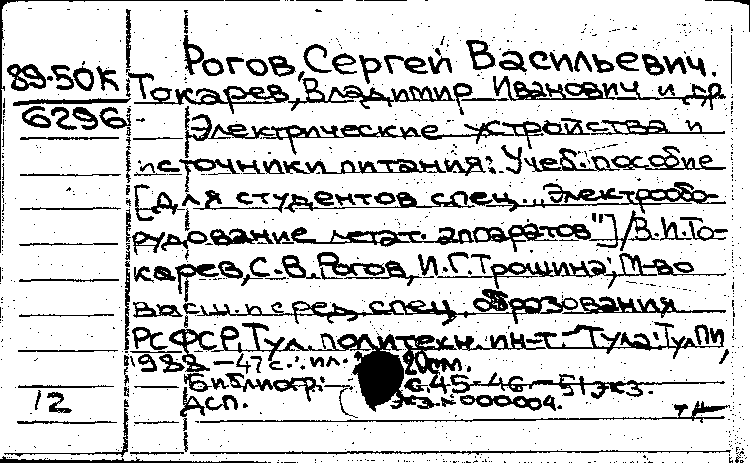 Рогов, Сергей Васильевич.
89-50К
Токарев, Владимир Иванович и др.
6296
Электрические устройства и
источники питания: Учеб. пособие
[для студентов спец. „Электрообо-
рудование летат. аппаратов"]/В.И.То-
карев, С.В. Рогов, И.Г. Трошина; М-во
высш. и сред. спец. образования
РСФСР, Тул. политехн. ин-т. - Тула: ТулПИ,
1988 - 47 с.: ил.; 20см.
Библиогр.: с.45-46. - 51 экз.
12
ДСП. Экз. N 000004.